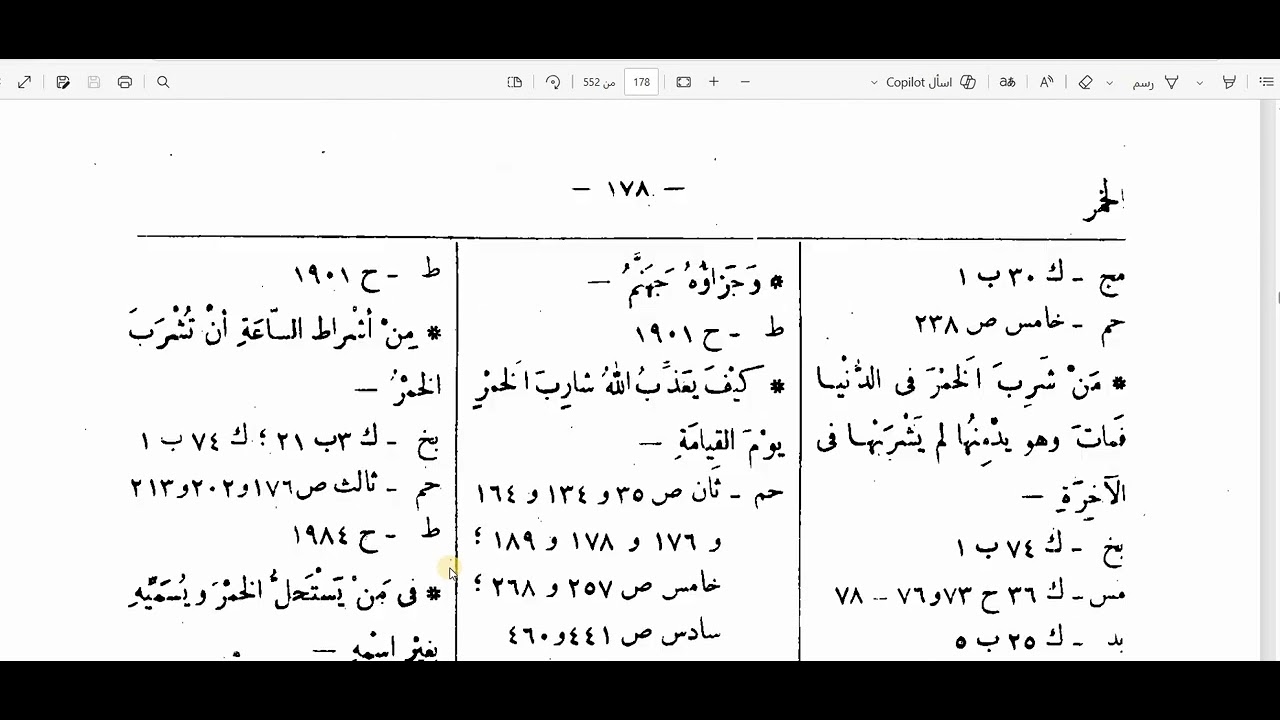 اسأل Copilot
رسم
178
من 552
الخمر
— ١٧٨ —
مج - ك ٣٠ ب ١
حم - خامس ص ٢٣٨
* مَنْ شَرِبَ الخَمْرَ فى الدُّنْيا
فَماتَ وهو يدْمِنُها لم يَشْرَبْها فى
الآخِرَةِ —
بخ - ك ٧٤ ب ١
مس - ك ٣٦ ح ٧٣ و٧٦ - ٧٨
بد - ك ٢٥ ب ٥
* وَجَزاؤُهُ جَهَنَّمُ —
ط - ح ١٩٠١
* كَيْفَ يعَذِّبُ اللهُ شارِبَ الخَمْرِ
يوْمَ القِيامَةِ —
حم - ثان ص ٣٥ و ١٣٤ و ١٦٤
و ١٧٦ و ١٧٨ و ١٨٩ ؛
خامس ص ٢٥٧ و ٢٦٨ ؛
سادس ص ٤٤١ و٤٦٠
ط - ح ١٩٠١
* مِنْ أشْراط السّاعَةِ أنْ تُشْرَبَ
الخمْرُ —
بخ - ك ٣ب ٢١ ؛ ك ٧٤ ب ١
حم - ثالث ص ١٧٦ و٢٠٢ و٢١٣
ط - ح ١٩٨٤
* فى مَنْ يَسْتَحلُّ الخمْرَ ويُسَمّيهِ
بغيْرِ اسْمِهِ —